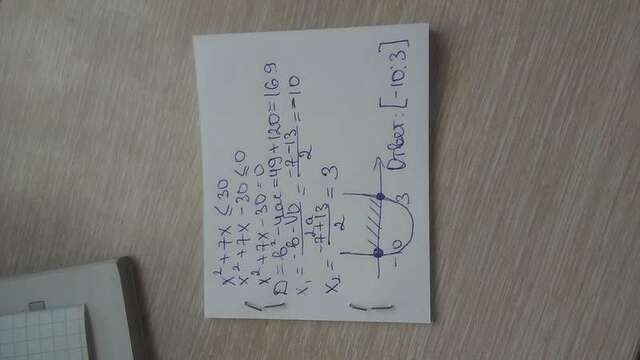 x² + 7x ≤ 30
x² + 7x - 30 ≤ 0
x² + 7x - 30 = 0
D = b² - 4ac = 49 + 120 = 169
x₁ = (-b - √D)/(2a) = (-7 - 13)/2 = -10
x₂ = (-7 + 13)/2 = 3
-10 3
Ответ: [-10; 3]